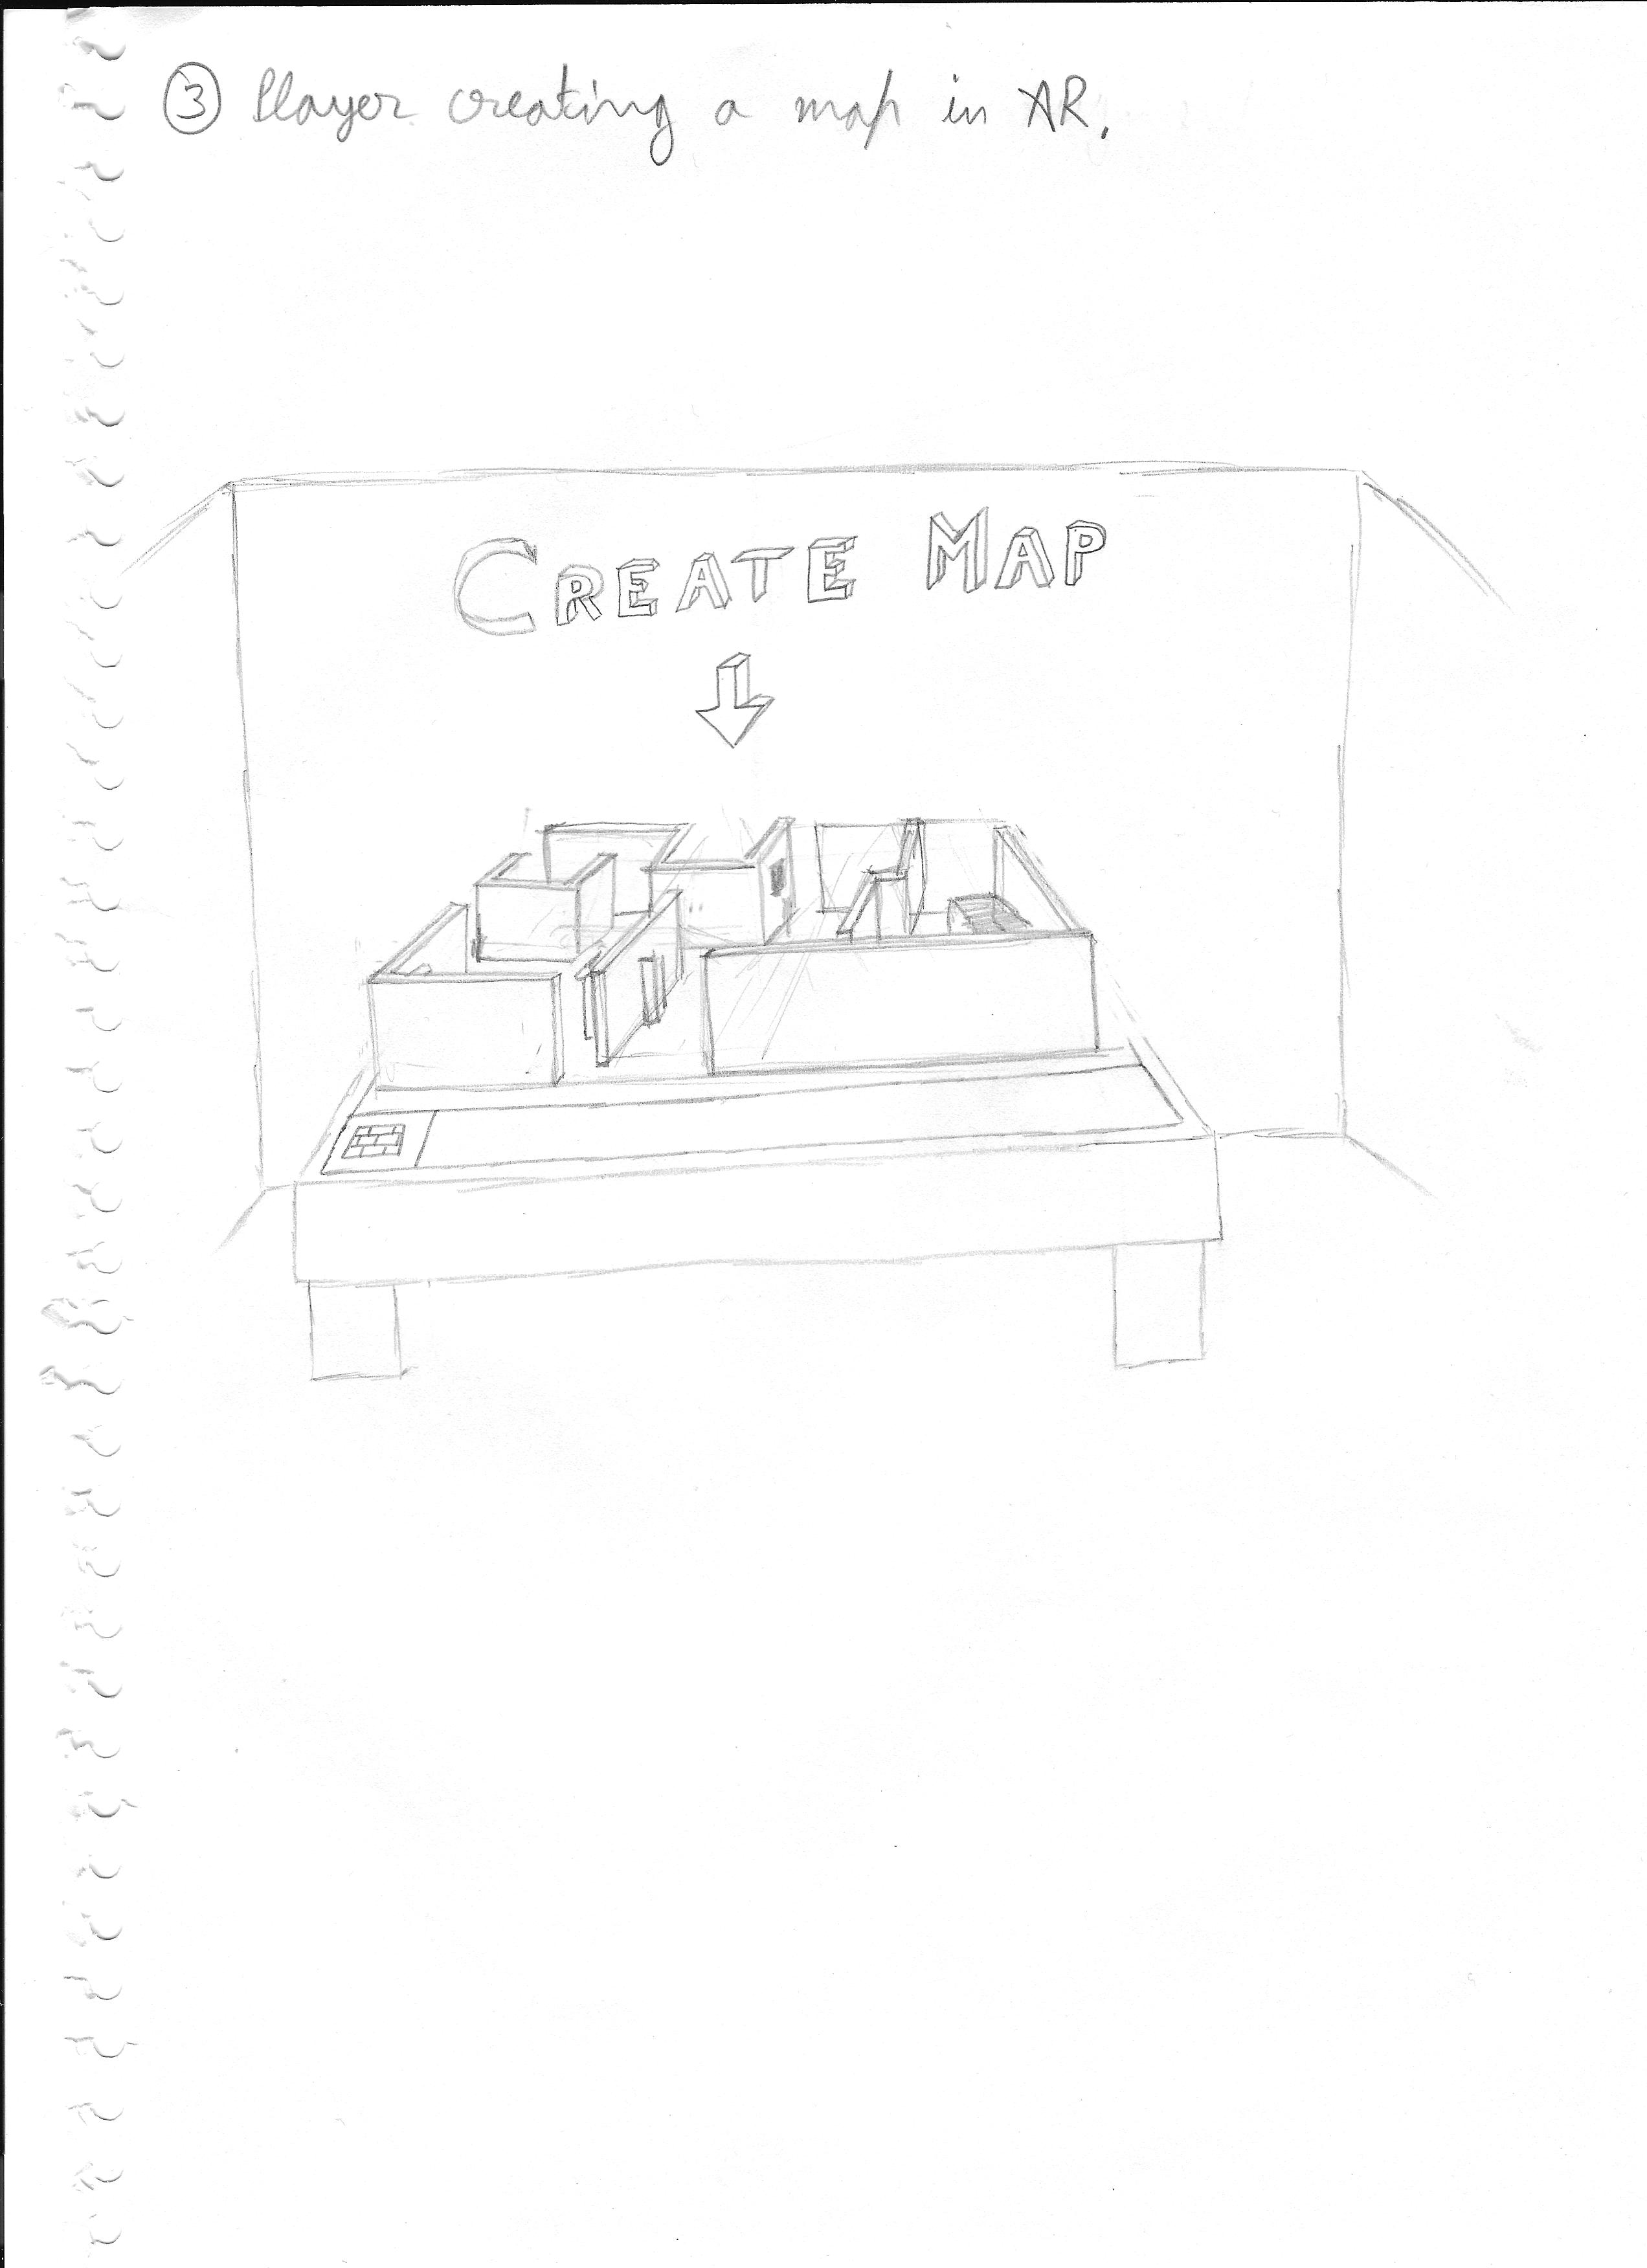 ③ Player creating a map in AR.
CREATE MAP